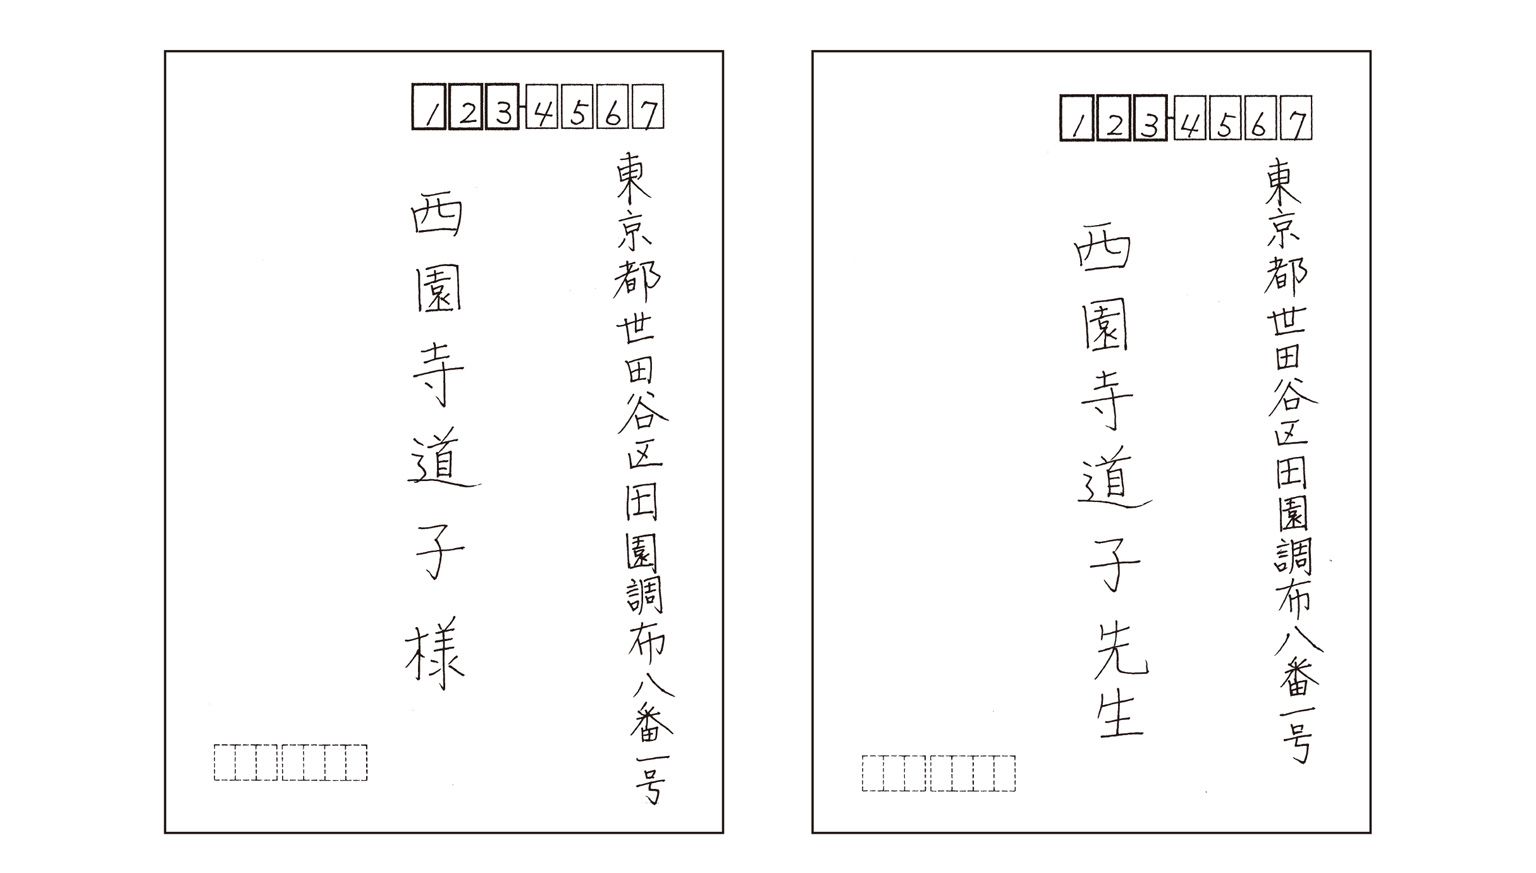 123-4567
東京都世田谷区田園調布八番一号
西園寺道子様
123-4567
東京都世田谷区田園調布八番一号
西園寺道子先生